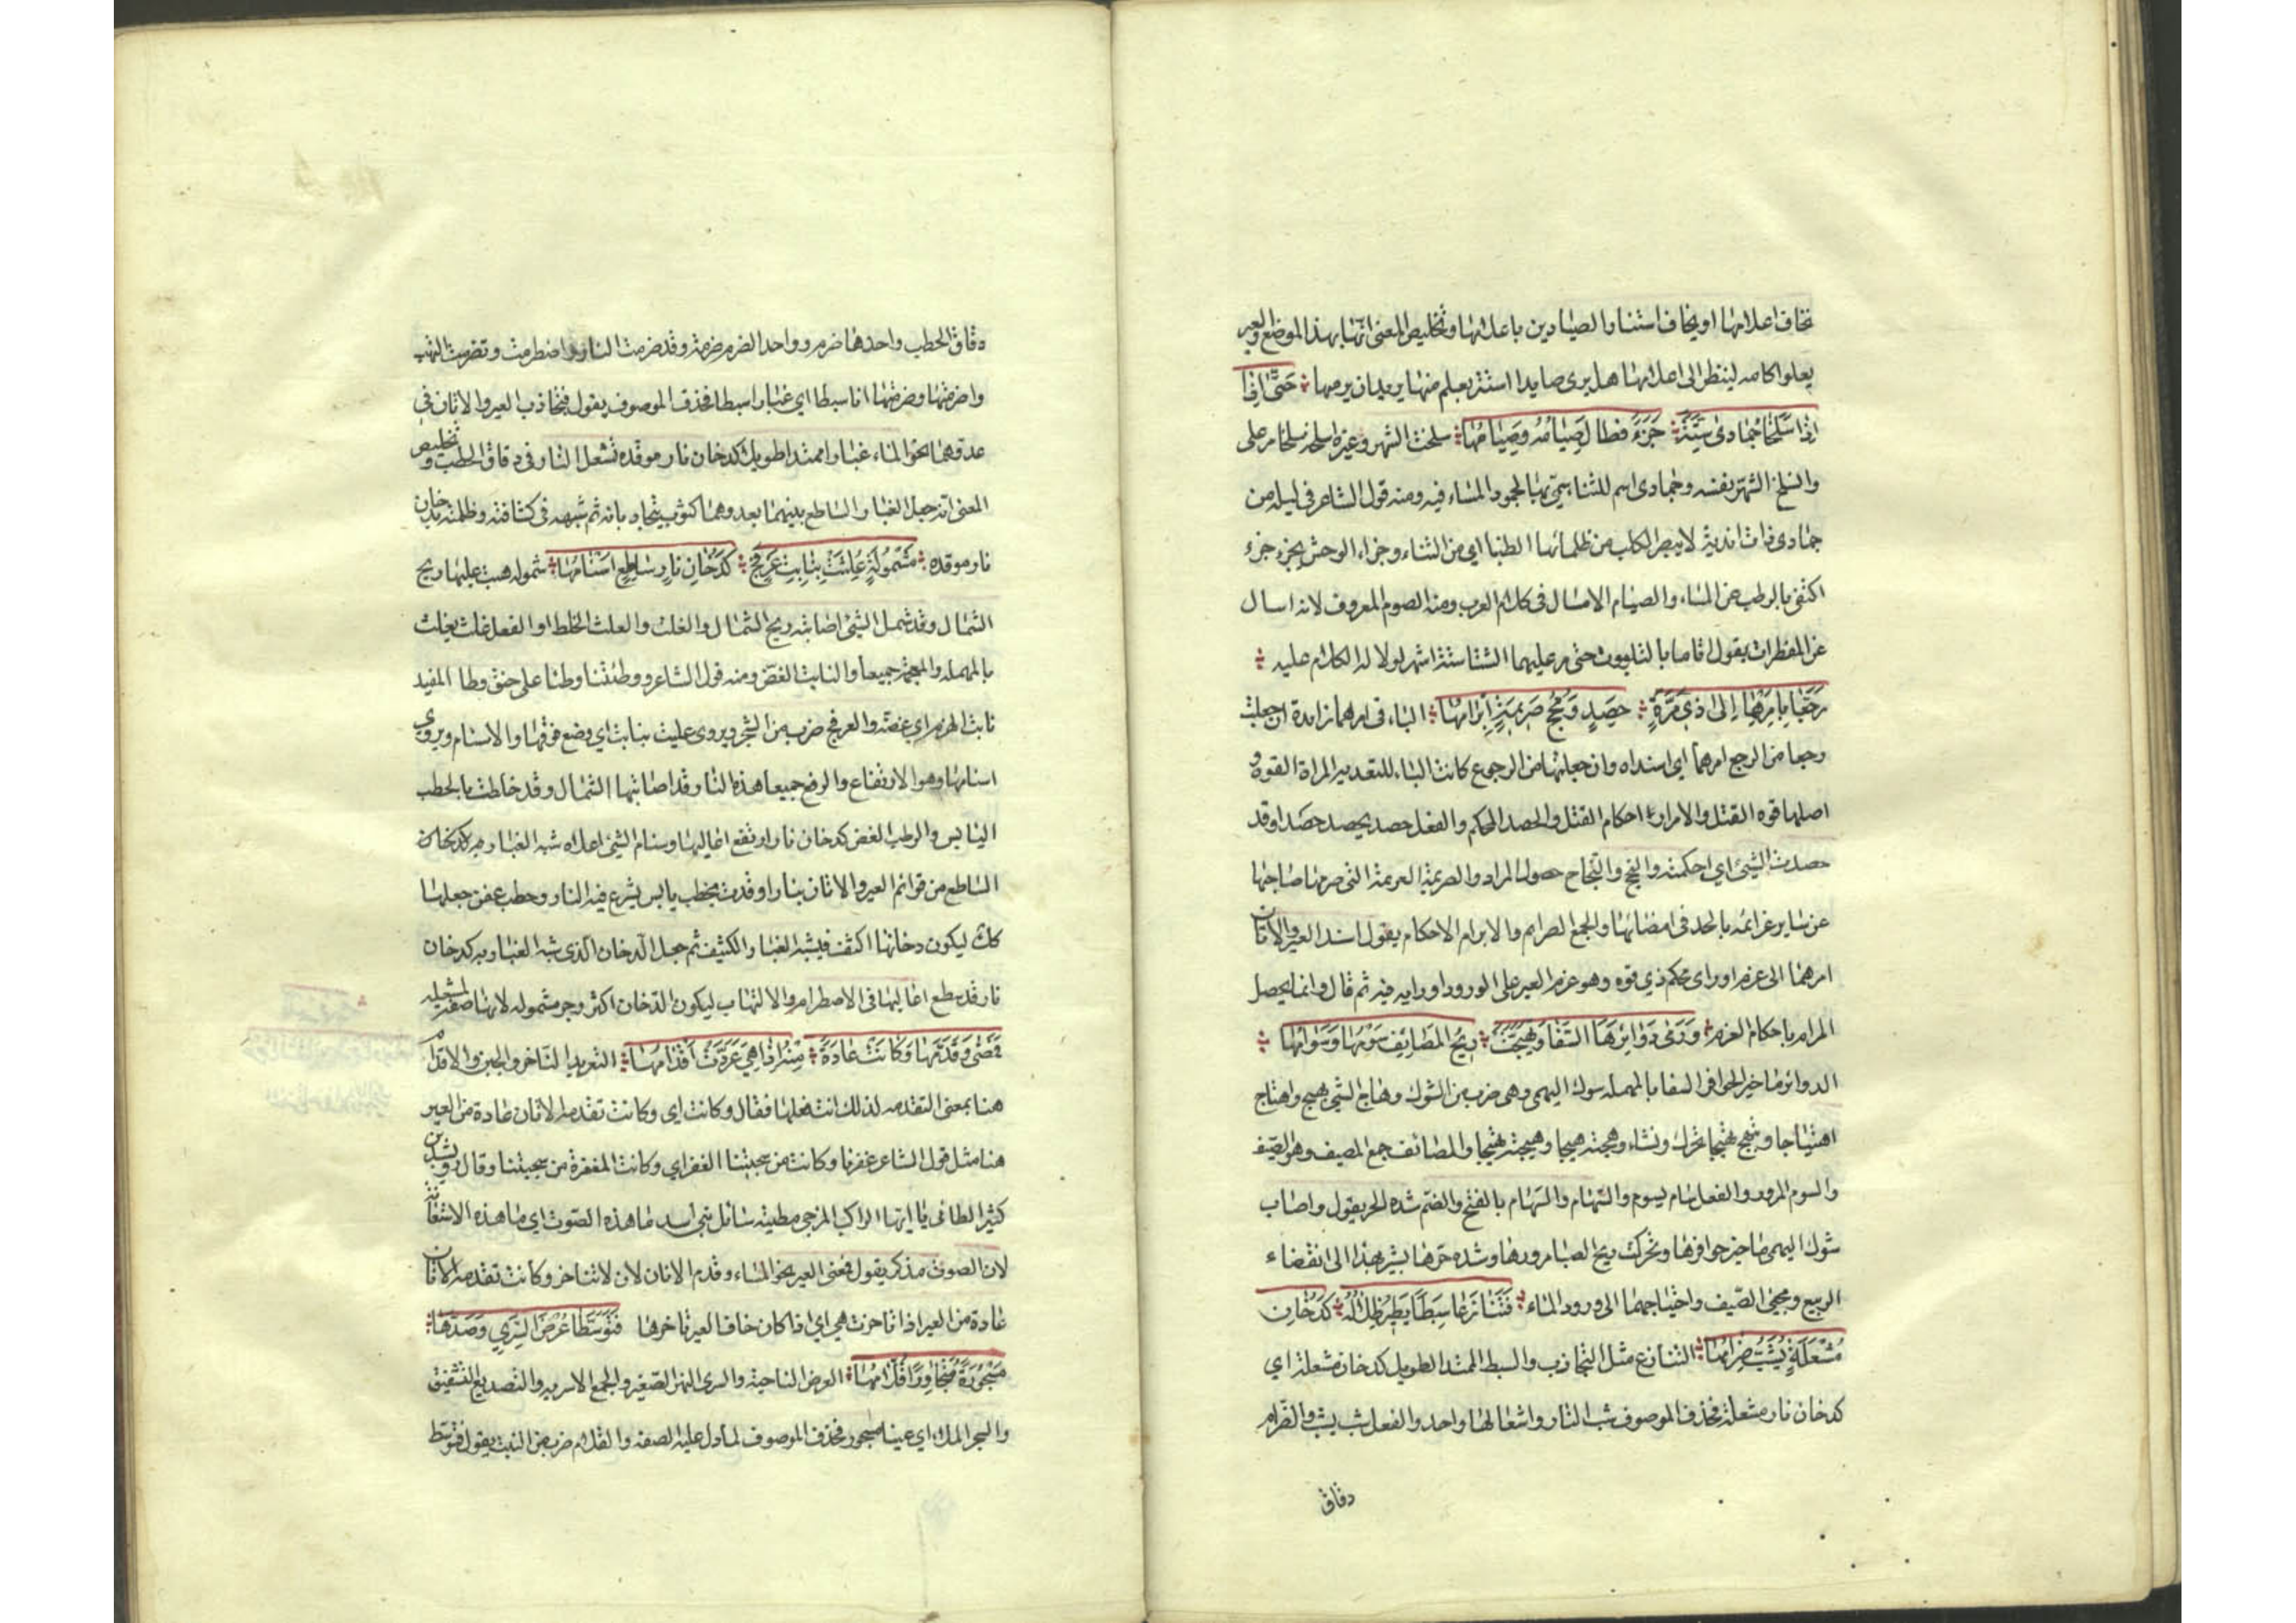 تخاف اعلامها او يخاف استتار الصيادين باعلامها وتخليص المعنى انهما بهذا الموضع والعير
يعلوا اكامه لينظر الى اعلامها هل يرى صايدا استتر بعلم منها يريد ان يرميها حَتَّى اِذَا
اِذَا سَلَخَا جُمَادى سِتَّةً جَزَءَا فَطَالَ صِيَامُهُ وَصِيَامُهَا سلخت الشهر وغيره اسلخه سلخا مر على
والسلخ الشهر بنفسه وجمادى اسم للشتا سمى بها لجمود الماء فيه ومنه قول الشاعر فى ليله من
جمادى ذات اندية لا يبصر الكلب من ظلمائها الطنبا اي من الشتاء وجزاء الوحش يجزء جزء
اكتفى بالرطب عن الماء والصيام الامساك فى كلام العرب ومنه الصوم المعروف لانه امساك
عن المفطرات يقول اقاما بالثلبوت حتى مر عليهما الشتا ستة اشهر لولا له الكلام عليه
رَجَعَا بِاَمْرِهِمَا اِلَى ذِي مِرَّةٍ حَصِدٍ وَنُجْحُ صَرِيمَةٍ اِبْرَامُهَا الباء فى امرهما زايدة ان جعلت
رجعا من الرجع امرهما اي اسنداه وان جعلتها من الرجوع كانت الباء للتعديه المراة القوه و
اصلها قوه الفتل والامرار احكام الفتل والحصد المحكم والفعل حصد يحصد حصدا وقد
حصدت الشيئ اي احكمته والنجح والنجاح حصول المراد والصريمة العزيمة التى صرمها صاحبها
عن ساير عزائمه بالجد فى امضائها والجمع الصرايم والابرام الاحكام يقول اسند العير والاتان
امرهما الى عزم او راى محكم ذي قوه وهو عزم العير على الورود او رايه فيه ثم قال وانما يحصل
المرام باحكام العزم وَرَمَى دَوَابِرَهَا السَّفَا وَتَهَيَّجَتْ رِيحُ المَصَائِفِ سَوْمُهَا وَسَهَامُهَا
الدوابر ماخير الحوافر السفا بالمهمله شوك البهمى وهى ضرب من الشوك وهاج الشيئ يهيج واهتاج
اهتياجا وتهيج تهيجا تحرك ونشاء وهجته هيجا وهيجته تهييجا والمصائف جمع المصيف وهو الصيف
والسوم المرور والفعل سام يسوم والسَّهام والسُهام بالفتح والضم شده الحر يقول واصاب
شوك البهمى ماخير حوافرها وتحركت ريح الصبا مرورها وشده حرها يشير بهذا الى انقضاء
الربيع ومجيئ الصيف واحتياجهما الى ورود الماء فَتَنَازَعَا سَبِطًا يَطِيرُ ظِلَالُهُ كَدُخَانِ
مُشْعَلَةٍ يُشَبُّ ضِرَامُهَا التنازع مثل التجاذب والسبط الممتد الطويل كدخان مشعلة اي
كدخان نار مشعلة فحذف الموصوف شب النار واشعالها واحد والفعل شب يشب والضرام
دقاق
دقاق الحطب واحدها ضرم وواحد الضرم ضرمة وقد ضرمت النار واضطرمت وتضرمت التهبت
واضرمتها وضرمتها انا سبطا اي غبارا سبطا فحذف الموصوف يقول فتجاذب العير والاتان فى
عدوهما نحو الماء غبارا ممتدا طويلا كدخان نار موقده تشعل النار فى دقاق الحطب وتخليص
المعنى انه جعل الغبار الساطع بينهما بعدوهما كثوب يتجاذبانه ثم شبهه فى كثافته وظلمته بدخان
نار موقده مَشْمُولَةٍ غُلِثَتْ بِنَابِتِ عَرْفَجٍ كَدُخَانِ نَارٍ سَاطِعٍ اَسْنَامُهَا مشموله هبت عليها ريح
الشمال وقد شمل الشيئ اصابته ريح الشمال والغلث والعلث الخلط او الفعل غلث يغلث
بالمهمله والمعجمة جميعا والنابت الغض ومنه قول الشاعر ووطئتنا وطئا على حنق وطا المقيد
نابت الهرم اي غضه والعرفج ضرب من الشجر ويروى عليت بنابت اي وضع فوقها والاسنام ويروى
اسنامها وهو الارتفاع والرفع جميعا هذه النار قد اصابتها الشمال وقد خلطت بالحطب
اليابس والرطب الغض كدخان نار ارتفع اعاليها وسنام الشيئ اعلاه شبه الغبار
الساطع من قوائم العير والاتان بنار اوقدت بحطب يابس يشرع فيه النار وحطب غض جعلها
كك ليكون دخانها اكثف فيشبه الغبار الكثيف ثم جعل الدخان الذى شبه الغبار به كدخان
نار قد سطع اعاليها فى الاضطرام والالتهاب ليكون الدخان اكثر وجر مشموله لانها صفة لمشعله
فَمَضَى وَقَدَّمَهَا وَكَانَتْ عَادَةً مِنْهُ اِذَا هِيَ عَرَّدَتْ اِقْدَامُهَا التعريد التاخر والجبن والاقدام
هنا بمعنى التقدمه لذلك انث فعلها فقال وكانت اي وكانت تقدمة الاتان عادة من العير
هذا مثل قول الشاعر غفرنا وكانت من سجيتنا الغفر اي وكانت المغفرة من سجيتنا وقال رويشد بن
كثير الطائى يا ايها الراكب المزجى مطيته سائل بنى اسد ما هذه الصوت اي ما هذه الاستغاثة
لان الصوت مذكر يقول فمضى العير نحو الماء وقدم الاتان لان لا تتاخر وكانت تقدمة الاتان
عادة من العير اذا تاخرت هى اي اذا كان خاف العير تاخرها فَتَوَسَّطَا عُرْضَ السَّرِيِّ وَصَدَّعَا
مَسْجُورَةً مُتَجَاوِرًا قُلَّامُهَا العرض الناحية والسرى النهر الصغير والجمع الاسريه والتصديع التشقيق
والسجر الملا اي عينا مسجورة فحذف الموصوف لما دل عليه الصفه والقلام ضرب من النبت يقول فتوسط